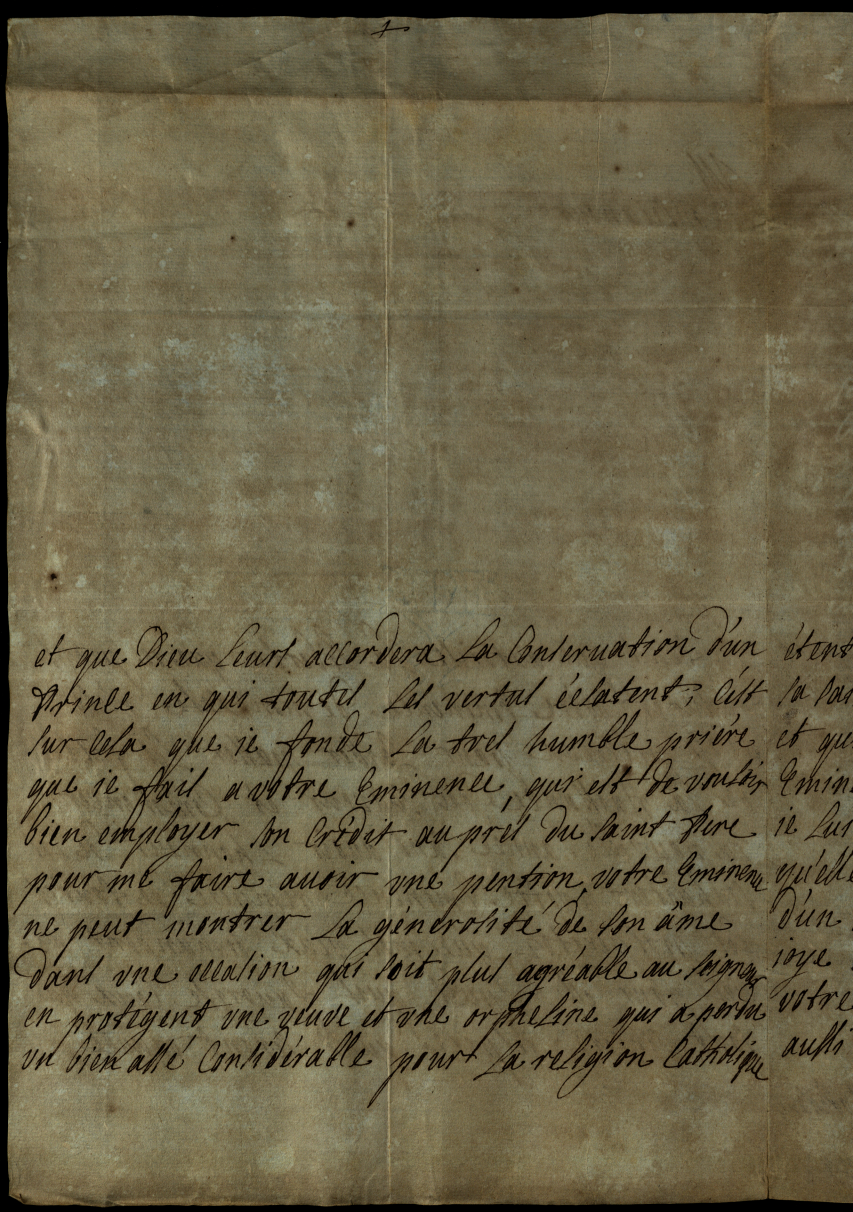 et que Dieu leurs accordera la Conseruation d'un
Prince en qui toutes les vertus éclatent; c'est
sur cela que ie fonde la tres humble priére
que ie fais a vôtre Eminence, qui est de vouloir
bien employer son Crédit auprés du saint Pere
pour me faire auoir vne pention, votre Eminence
ne peut montrer la génerosité de son âme
dans vne occasion qui soit plus agréable au seigneur
en protégent vne veuve et vne orpheline qui a perdu
vn bien assé Considérable pour la religion Catholique
étent
sa
et
ie
qu'elle
d'un
joye
votre
aussi